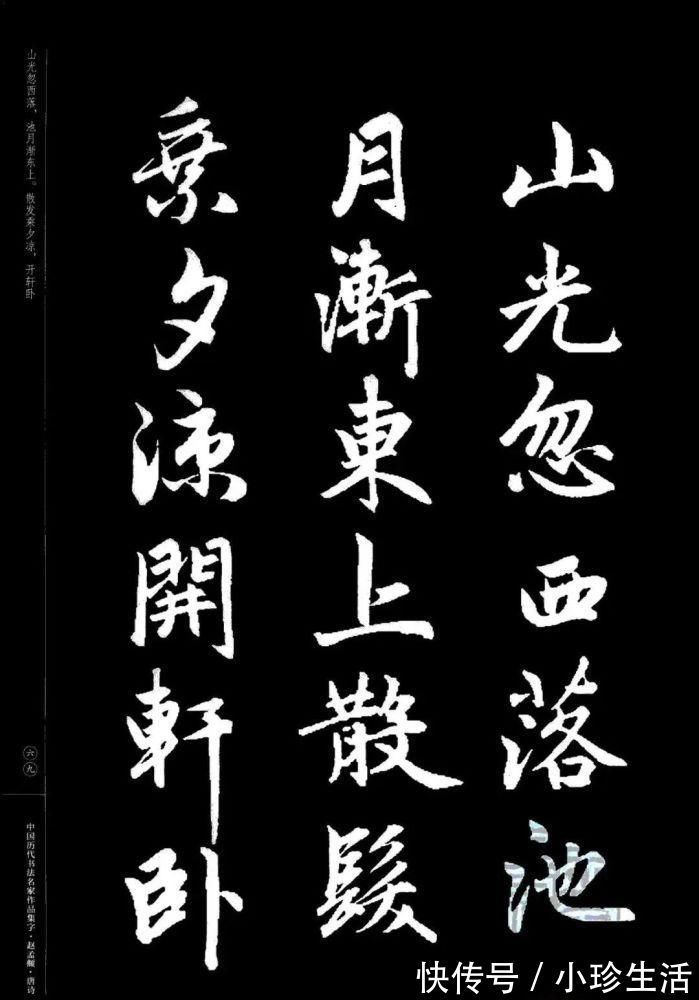 山光忽西落池
月漸東上散髮
乘夕涼開軒卧
山光忽西落，池月渐东上。散发乘夕凉，开轩卧
六九
中国历代书法名家作品集字·赵孟頫·唐诗
快传号／小珍生活